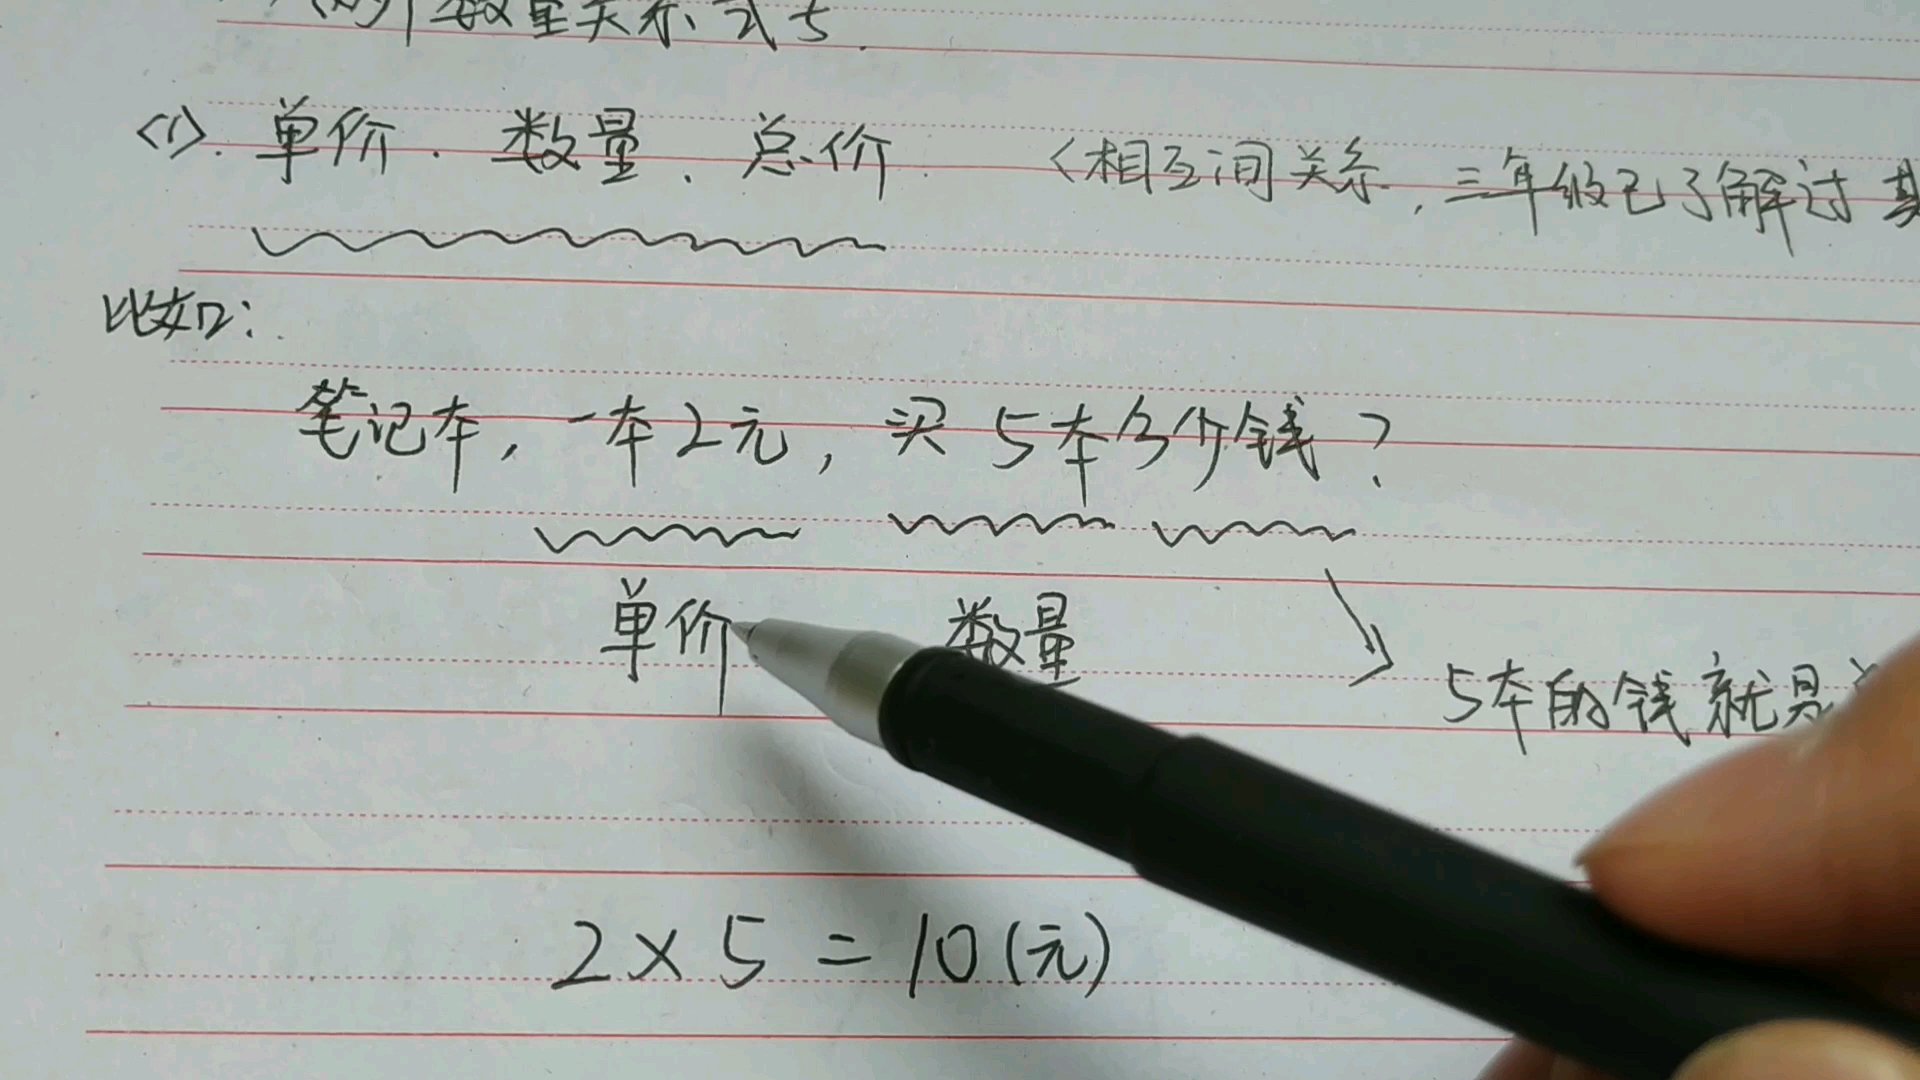 数量关系式
<1>. 单价. 数量、总价 <相互间关系,三年级已了解过
比如:
笔记本,一本2元,买5本多少钱?
单价 数量
5本的钱就是
2×5=10(元)